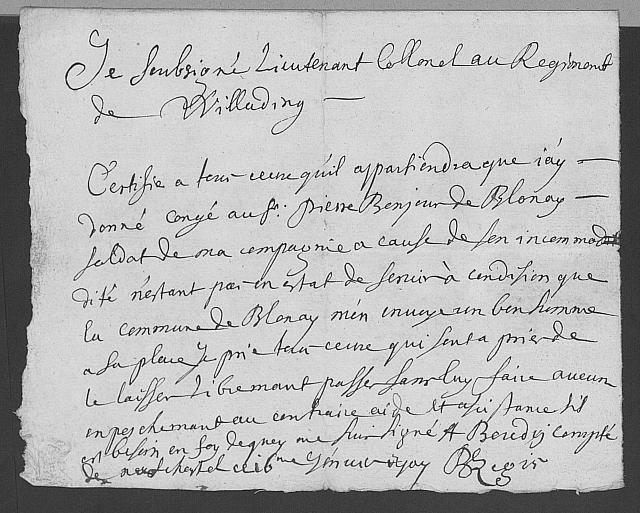 Je soubsigné Lieutenant Collonel au Regiment
de Willading —
Certifie a tous ceux qu'il appartiendra que j'ay —
donné congé au Sr. Pierre Bonjour de Blonay —
soldat de ma compagnie a cause de son incommo
dité n'estant pas en estat de servir à condision que
la commune de Blonay m'en envoye un bon homme
a sa place Je prie tous ceux qui sont a prier de
le laisser Librement passer sans luy faire aucun
enpeschemant au contraire aide et asistance s'il
est besoin, en foy de quoy me suis signé A
de ce 16me